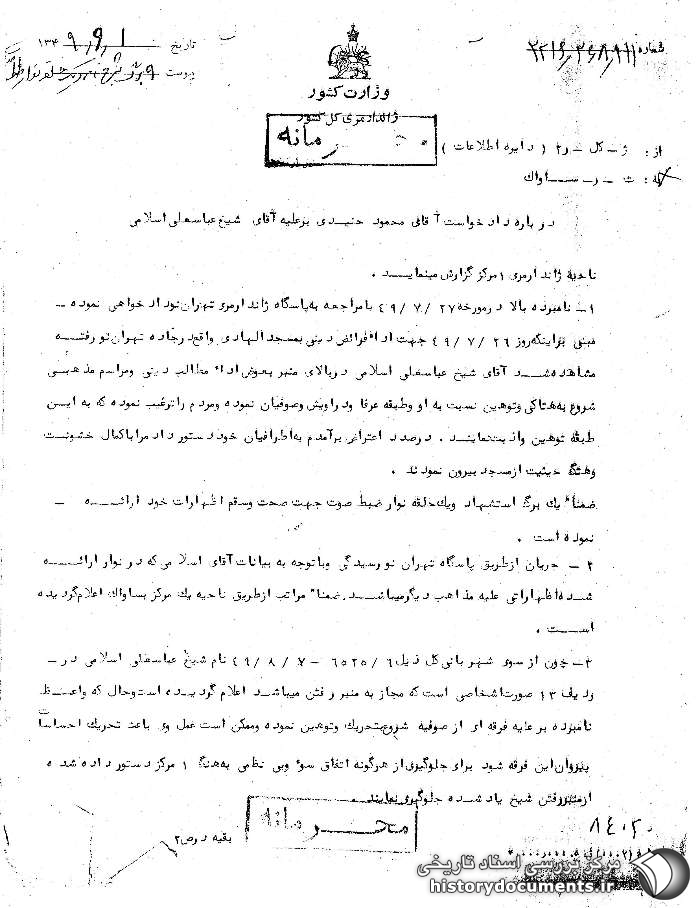 شماره
تاریخ ۱۳۴۹/۹/۱
پیوست
وزارت کشور
ژاندارمری کل کشور
محرمانه
از : ژ ـ کل ـ ر۲ ( دایره اطلاعات )
به : ت ـ ر ـ ساواک
درباره دادخواست آقای محمود جنیدی برعلیه آقای شیخ عباسعلی اسلامی
ناحیه ژاندارمری ۱ مرکز گزارش مینماید .
۱ـ نامبرده بالا درمورخه ۴۹/۷/۲۷ با مراجعه به پاسگاه ژاندارمری تهران نو دادخواهی نموده ـ
مبنی براینکه روز ۴۹/۷/۲۶ جهت اداء فرائض دینی بمسجد الهادی واقع درجاده تهران نو رفتـه
مشاهده شد آقای شیخ عباسعلی اسلامی دربالای منبر بعوض اداء مطالب دینی ومراسم مذهبی
شروع به هتاکی وتوهین نسبت به او وطبقه عرفا ودراویش وصوفیان نموده ومردم را ترغیب نموده که به این
طبقه توهین واذیت نمایند . درصدد اعتراض برآمدم به اطرافیان خود دستور داد مرا باکمال خشونت
وهتک حیثیت ازمسجد بیرون نمودند .
ضمناً یک برگ استشهاد ویک حلقه نوار ضبط صوت جهت صحت وسقم اظهارات خود ارائه ـ
نموده است .
۲ ـ جریان ازطریق پاسگاه تهران نو رسیدگی وباتوجه به بیانات آقای اسلامی که در نوار ارائه
شده اظهاراتی علیه مذاهب دیگر میباشد ضمناً مراتب ازطریق ناحیه یک مرکز بساواک اعلام گردیده
است .
۳ـ چون از سوی شهربانی کل ذیل ۶۵۲۵/۶ ـ ۴۹/۸/۷ نام شیخ عباسعلی اسلامی در ـ
ردیف ۱۳ صورت اشخاصی است که مجاز به منبر رفتن میباشد اعلام گردیده است وحال که واعظ
نامبرده برعلیه فرقه ای از صوفیه شروع بتحریک وتوهین نموده وممکن است عمل وی باعث تحریک احساسات
پیروان این فرقه شود برای جلوگیری از هرگونه اتفاق سوء وبی نظمی به هنگ ۱ مرکز دستور داده شده
ازمنبر رفتن شیخ یاد شده جلوگیری نمایند .
محرمانه
بقیه درص۲
۸۴۰۲۰
مرکز بررسی اسناد تاریخی
historydocuments.ir